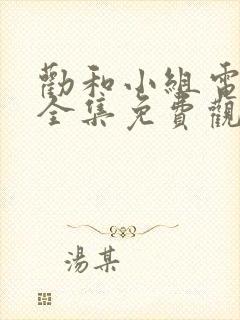 勸和小組電
全集免費觀
湯某